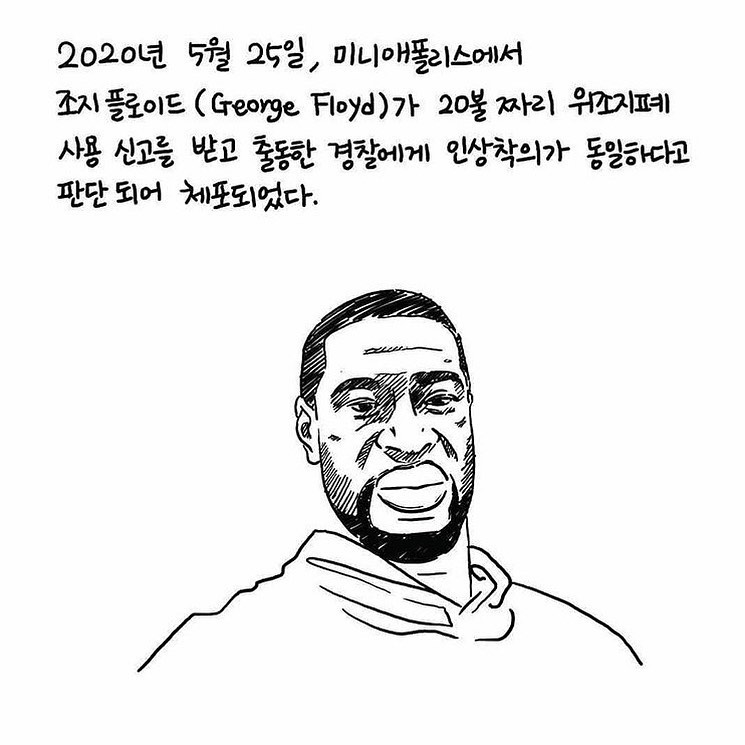 2020년 5월 25일, 미니애폴리스에서
조지 플로이드 (George Floyd)가 20불 짜리 위조지폐
사용 신고를 받고 출동한 경찰에게 인상착의가 동일하다고
판단되어 체포되었다.